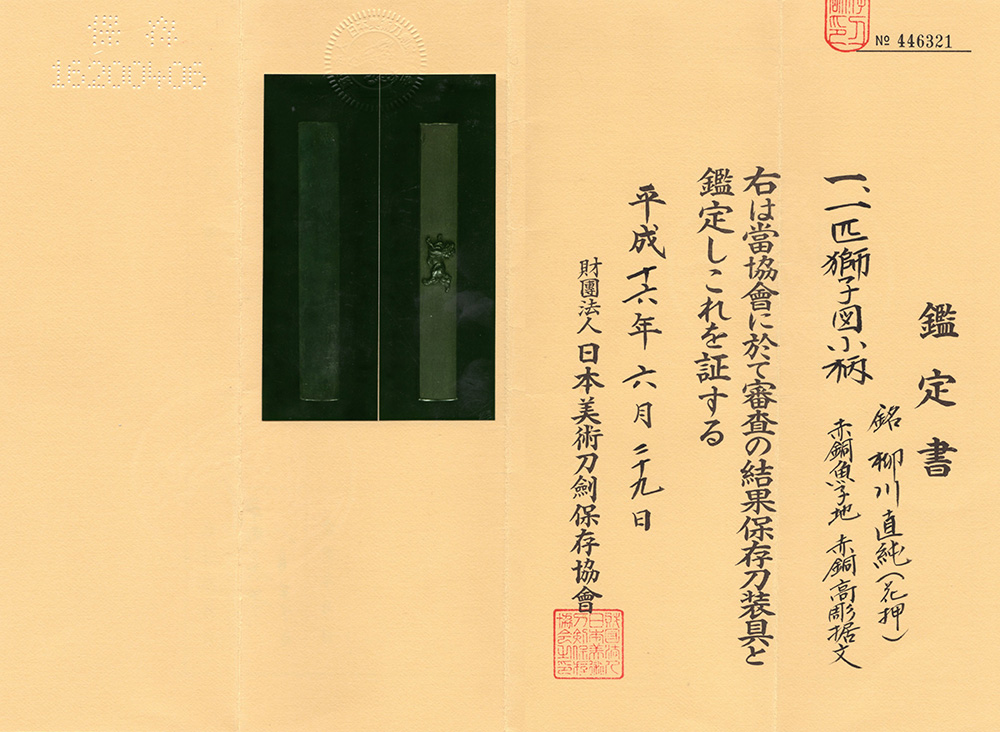 № 446321
鑑定書
銘 柳川直純(花押)
一、一匹獅子図小柄
赤銅魚子地 赤銅高彫据文
右は當協會に於て審査の結果保存刀装具と
鑑定しこれを証する
平成十六年六月二十九日
財團法人 日本美術刀劍保存協會
財団法人
日本美術
刀剣保存
協会之印
保存
16200406